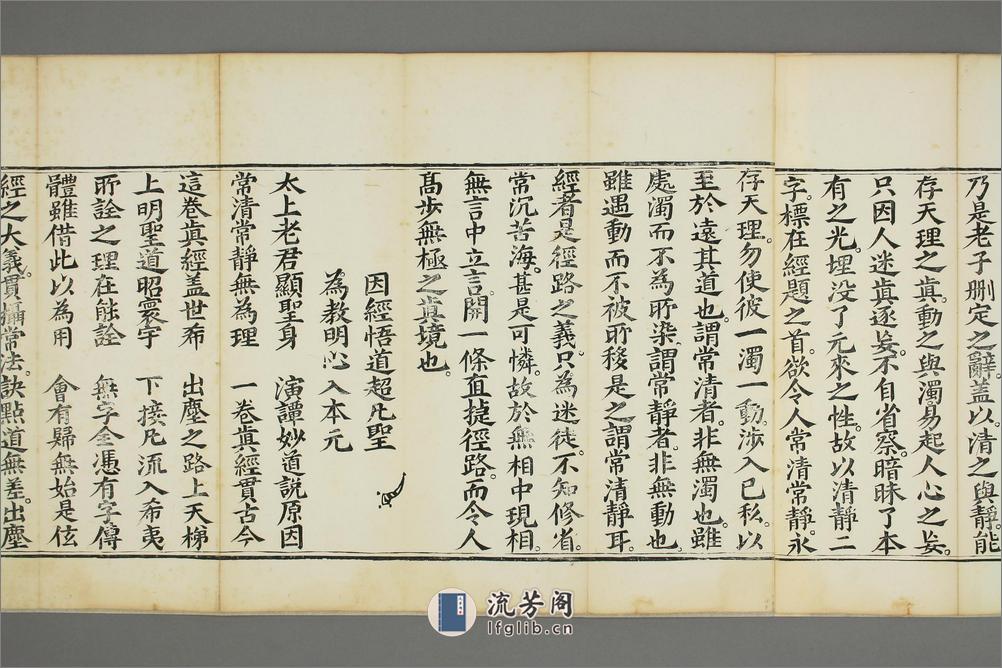 乃是老子刪定之辭。盖以清之與靜。能
存天理之真。動之與濁易起人心之妄。
只因人迷真逐妄。不自省察。暗昧了本
有之光。埋没了元來之性。故以清靜二
字。標在經題之首。欲令人常清常靜。永
存天理。勿使彼一濁一動。涉入己私。以
至於遠其道也。謂常清者。非無濁也。雖
處濁而不為所染。謂常靜者。非無動也。
雖遇動而不被所移。是之謂常清靜耳。
經者是徑路之義。只為迷徒。不知修省。
常沉苦海。甚是可憐。故於無相中現相。
無言中立言。開一條直捷徑路。而令人
高步無極之真境也。
因經悟道超凡聖
為教明心入本元
太上老君顯聖身 演譚妙道説原因
常清常靜無為理 一卷真經貫古今
這卷真經盖世希 出塵之路上天梯
上明聖道昭寰宇 下接凡流入希夷
所詮之理在能詮 無字全憑有字傳
體雖借此以為用 會有歸無始是伭
經之大義。貫攝常法。訣點道無差。出塵
流芳阁
lfglib.cn